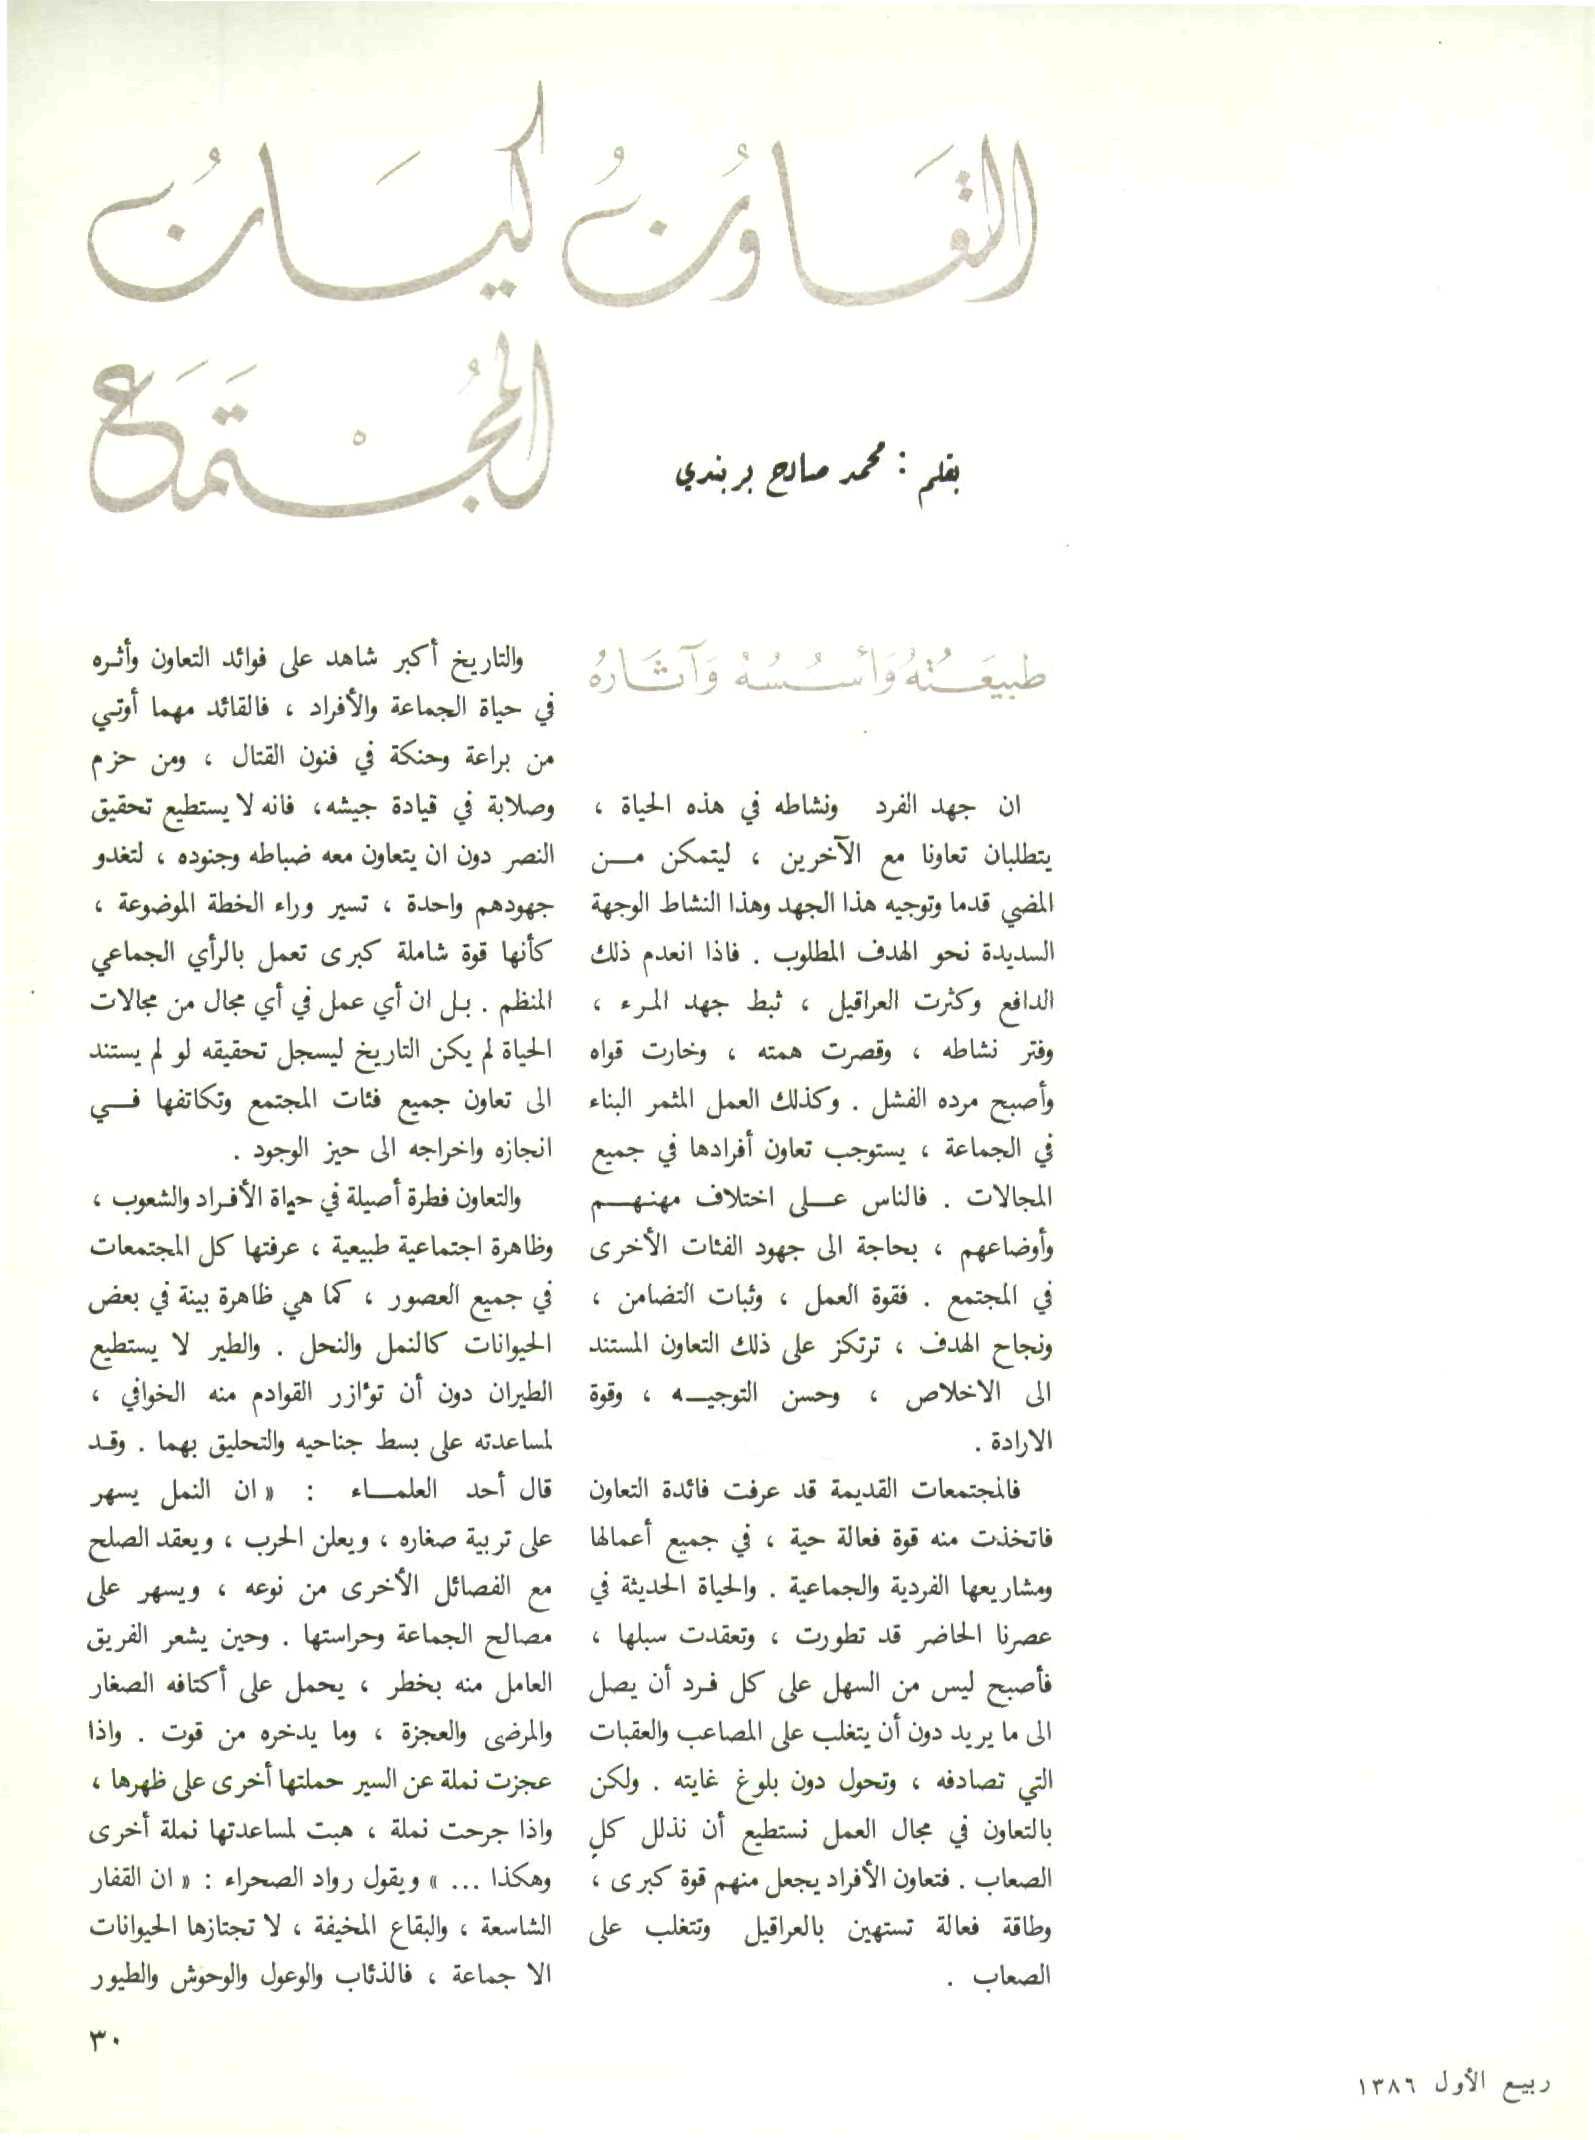 التَّعَاوُنُ كَيَانُ
المُجْتَمَعَ
بقلم : محمد صالح بربندي
طبيعَتُهُ وَأُسُسُهُ وَآثَارُهُ
ان جهد الفرد ونشاطه في هذه الحياة ،
يتطلبان تعاونا مع الآخرين ، ليتمكن مـــن
المضي قدما وتوجيه هذا الجهد وهذا النشاط الوجهة
السديدة نحو الهدف المطلوب . فاذا انعدم ذلك
الدافع وكثرت العراقيل ، ثبط جهد المرء ،
وفتر نشاطه ، وقصرت همته ، وخارت قواه
وأصبح مرده الفشل . وكذلك العمل المثمر البناء
في الجماعة ، يستوجب تعاون أفرادها في جميع
المجالات . فالناس عـــلى اختلاف مهنهـــم
وأوضاعهم ، بحاجة الى جهود الفئات الأخرى
في المجتمع . فقوة العمل ، وثبات التضامن ،
ونجاح الهدف ، ترتكز على ذلك التعاون المستند
الى الاخلاص ، وحسن التوجيـــه ، وقوة
الارادة .
فالمجتمعات القديمة قد عرفت فائدة التعاون
فاتخذت منه قوة فعالة حية ، في جميع أعمالها
ومشاريعها الفردية والجماعية . والحياة الحديثة في
عصرنا الحاضر قد تطورت ، وتعقدت سبلها ،
فأصبح ليس من السهل على كل فرد أن يصل
الى ما يريد دون أن يتغلب على المصاعب والعقبات
التي تصادفه ، وتحول دون بلوغ غايته . ولكن
بالتعاون في مجال العمل نستطيع أن نذلل كل
الصعاب . فتعاون الأفراد يجعل منهم قوة كبرى ،
وطاقة فعالة تستهين بالعراقيل وتتغلب على
الصعاب .
والتاريخ أكبر شاهد على فوائد التعاون وأثره
في حياة الجماعة والأفراد ، فالقائد مهما أوتي
من براعة وحنكة في فنون القتال ، ومن حزم
وصلابة في قيادة جيشه، فانه لا يستطيع تحقيق
النصر دون ان يتعاون معه ضباطه وجنوده ، لتغدو
جهودهم واحدة ، تسير وراء الخطة الموضوعة ،
كأنها قوة شاملة كبرى تعمل بالرأي الجماعي
المنظم . بل ان أي عمل في أي مجال من مجالات
الحياة لم يكن التاريخ ليسجل تحقيقه لو لم يستند
الى تعاون جميع فئات المجتمع وتكاتفها فـــي
انجازه واخراجه الى حيز الوجود .
والتعاون فطرة أصيلة في حياة الأفراد والشعوب ،
وظاهرة اجتماعية طبيعية ، عرفتها كل المجتمعات
في جميع العصور ، كما هي ظاهرة بينة في بعض
الحيوانات كالنمل والنحل . والطير لا يستطيع
الطيران دون أن تؤازر القوادم منه الخوافي ،
لمساعدته على بسط جناحيه والتحليق بهما . وقد
قال أحد العلمـــاء : « ان النمل يسهر
على تربية صغاره ، ويعلن الحرب ، ويعقد الصلح
مع الفصائل الأخرى من نوعه ، ويسهر على
مصالح الجماعة وحراستها . وحين يشعر الفريق
العامل منه بخطر ، يحمل على أكتافه الصغار
والمرضى والعجزة ، وما يدخره من قوت . واذا
عجزت نملة عن السير حملتها أخرى على ظهرها ،
واذا جرحت نملة ، هبت لمساعدتها نملة أخرى
وهكذا ... » ويقول رواد الصحراء : « ان القفار
الشاسعة ، والبقاع المخيفة ، لا تجتازها الحيوانات
الا جماعة ، فالذئاب والوعول والوحوش والطيور
٣٠
ربيع الأول ١٣٨٦